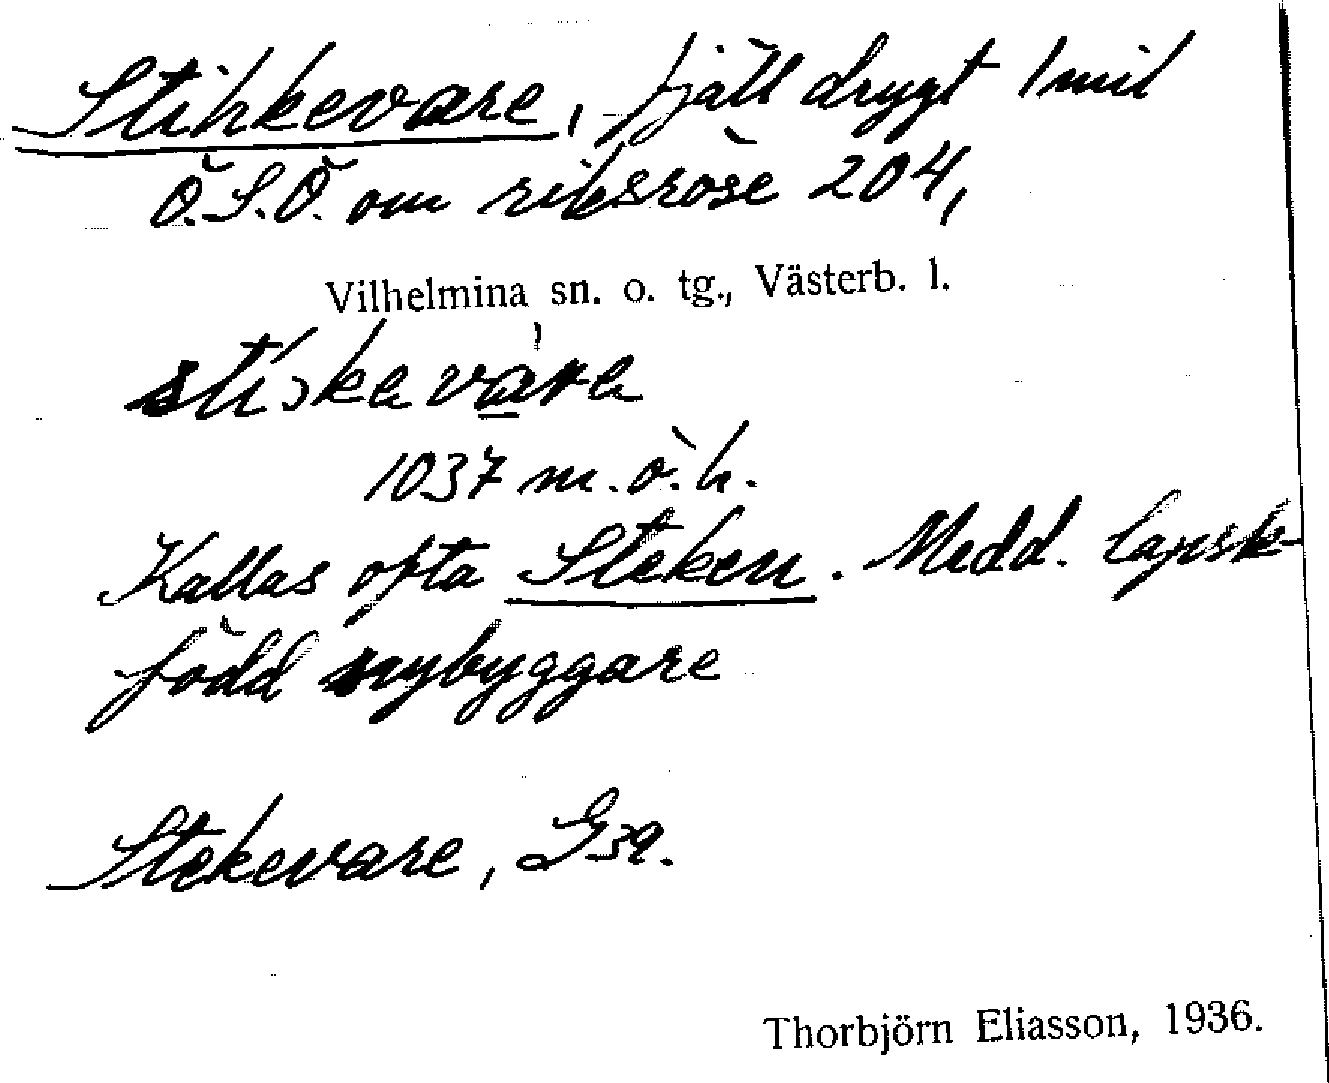 Stihkevare, fjäll drygt 1 mil
Ö.S.Ö. om riksröse 204,
Vilhelmina sn. o. tg., Västerb. l.
1037 m.ö.h.
Kallas ofta Steken. Medd. lapsk-
född nybyggare
Stekevare, G39.
Thorbjörn Eliasson, 1936.